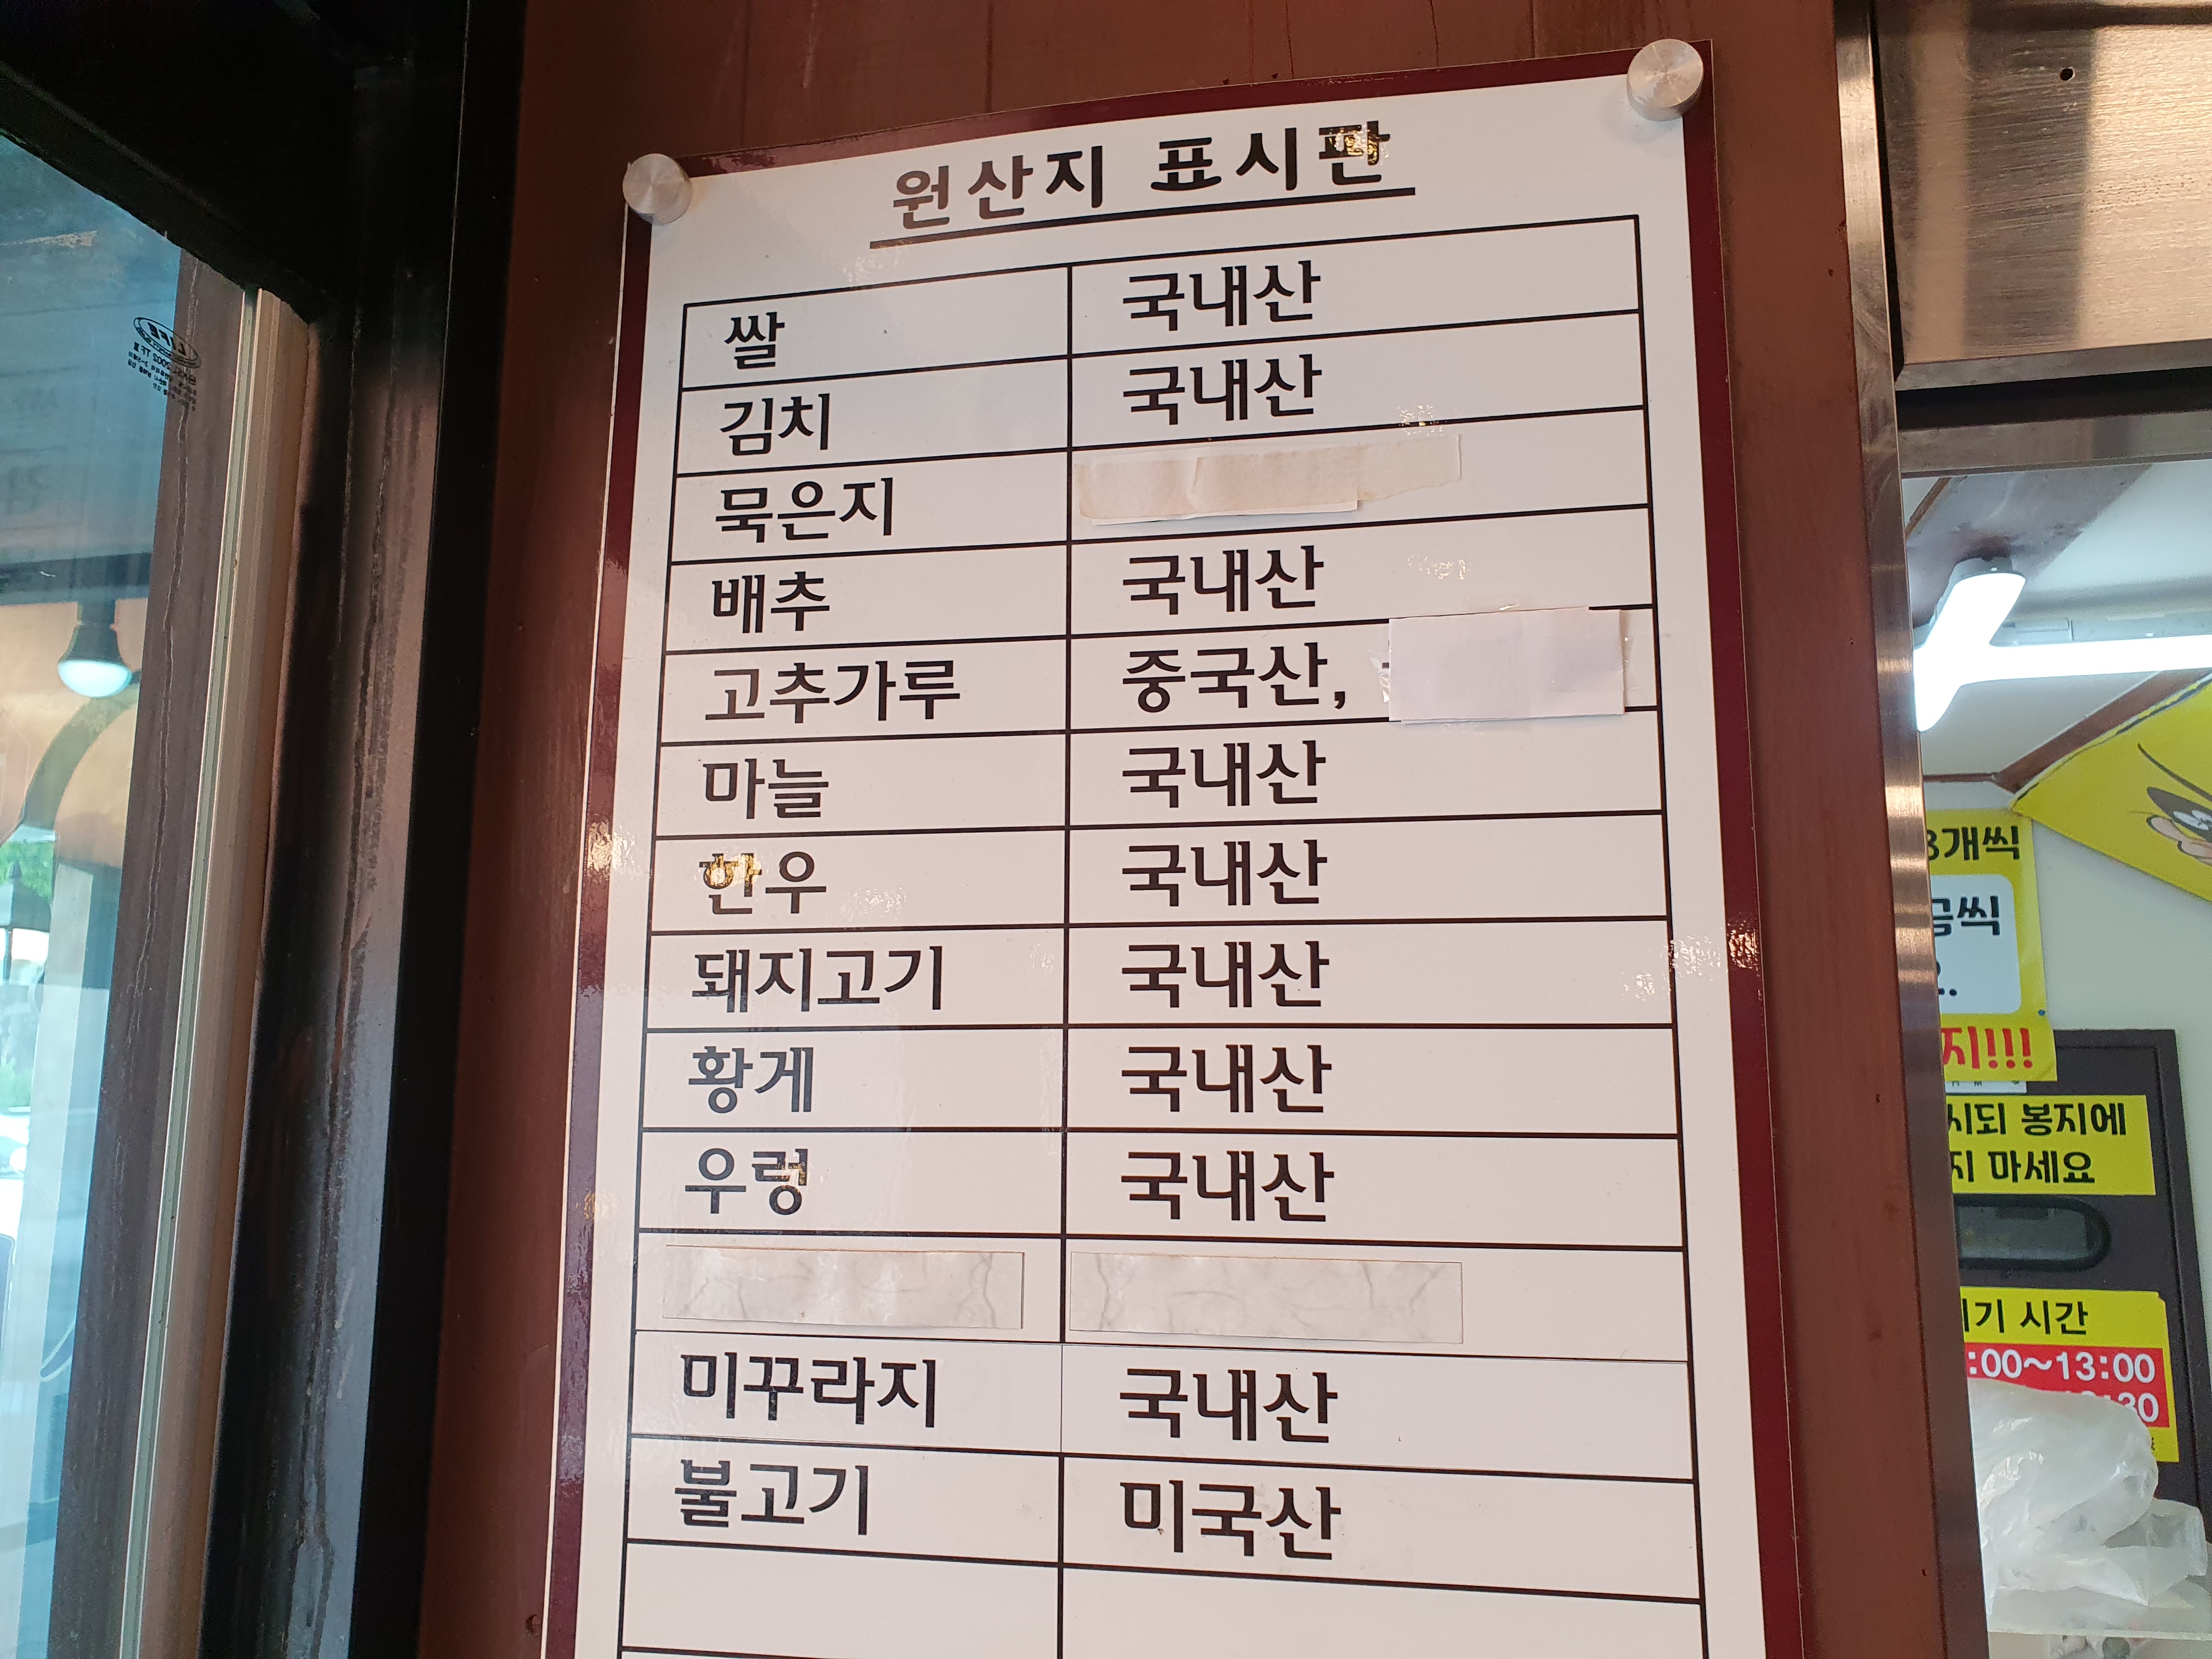 원산지 표시판
쌀 국내산
김치 국내산
묵은지
배추 국내산
고추가루 중국산,
마늘 국내산
한우 국내산
돼지고기 국내산
황게 국내산
우렁 국내산
미꾸라지 국내산
불고기 미국산
8개씩
씩
지!!!
시되 봉지에
지 마세요
기 시간
:00~13:00
:30